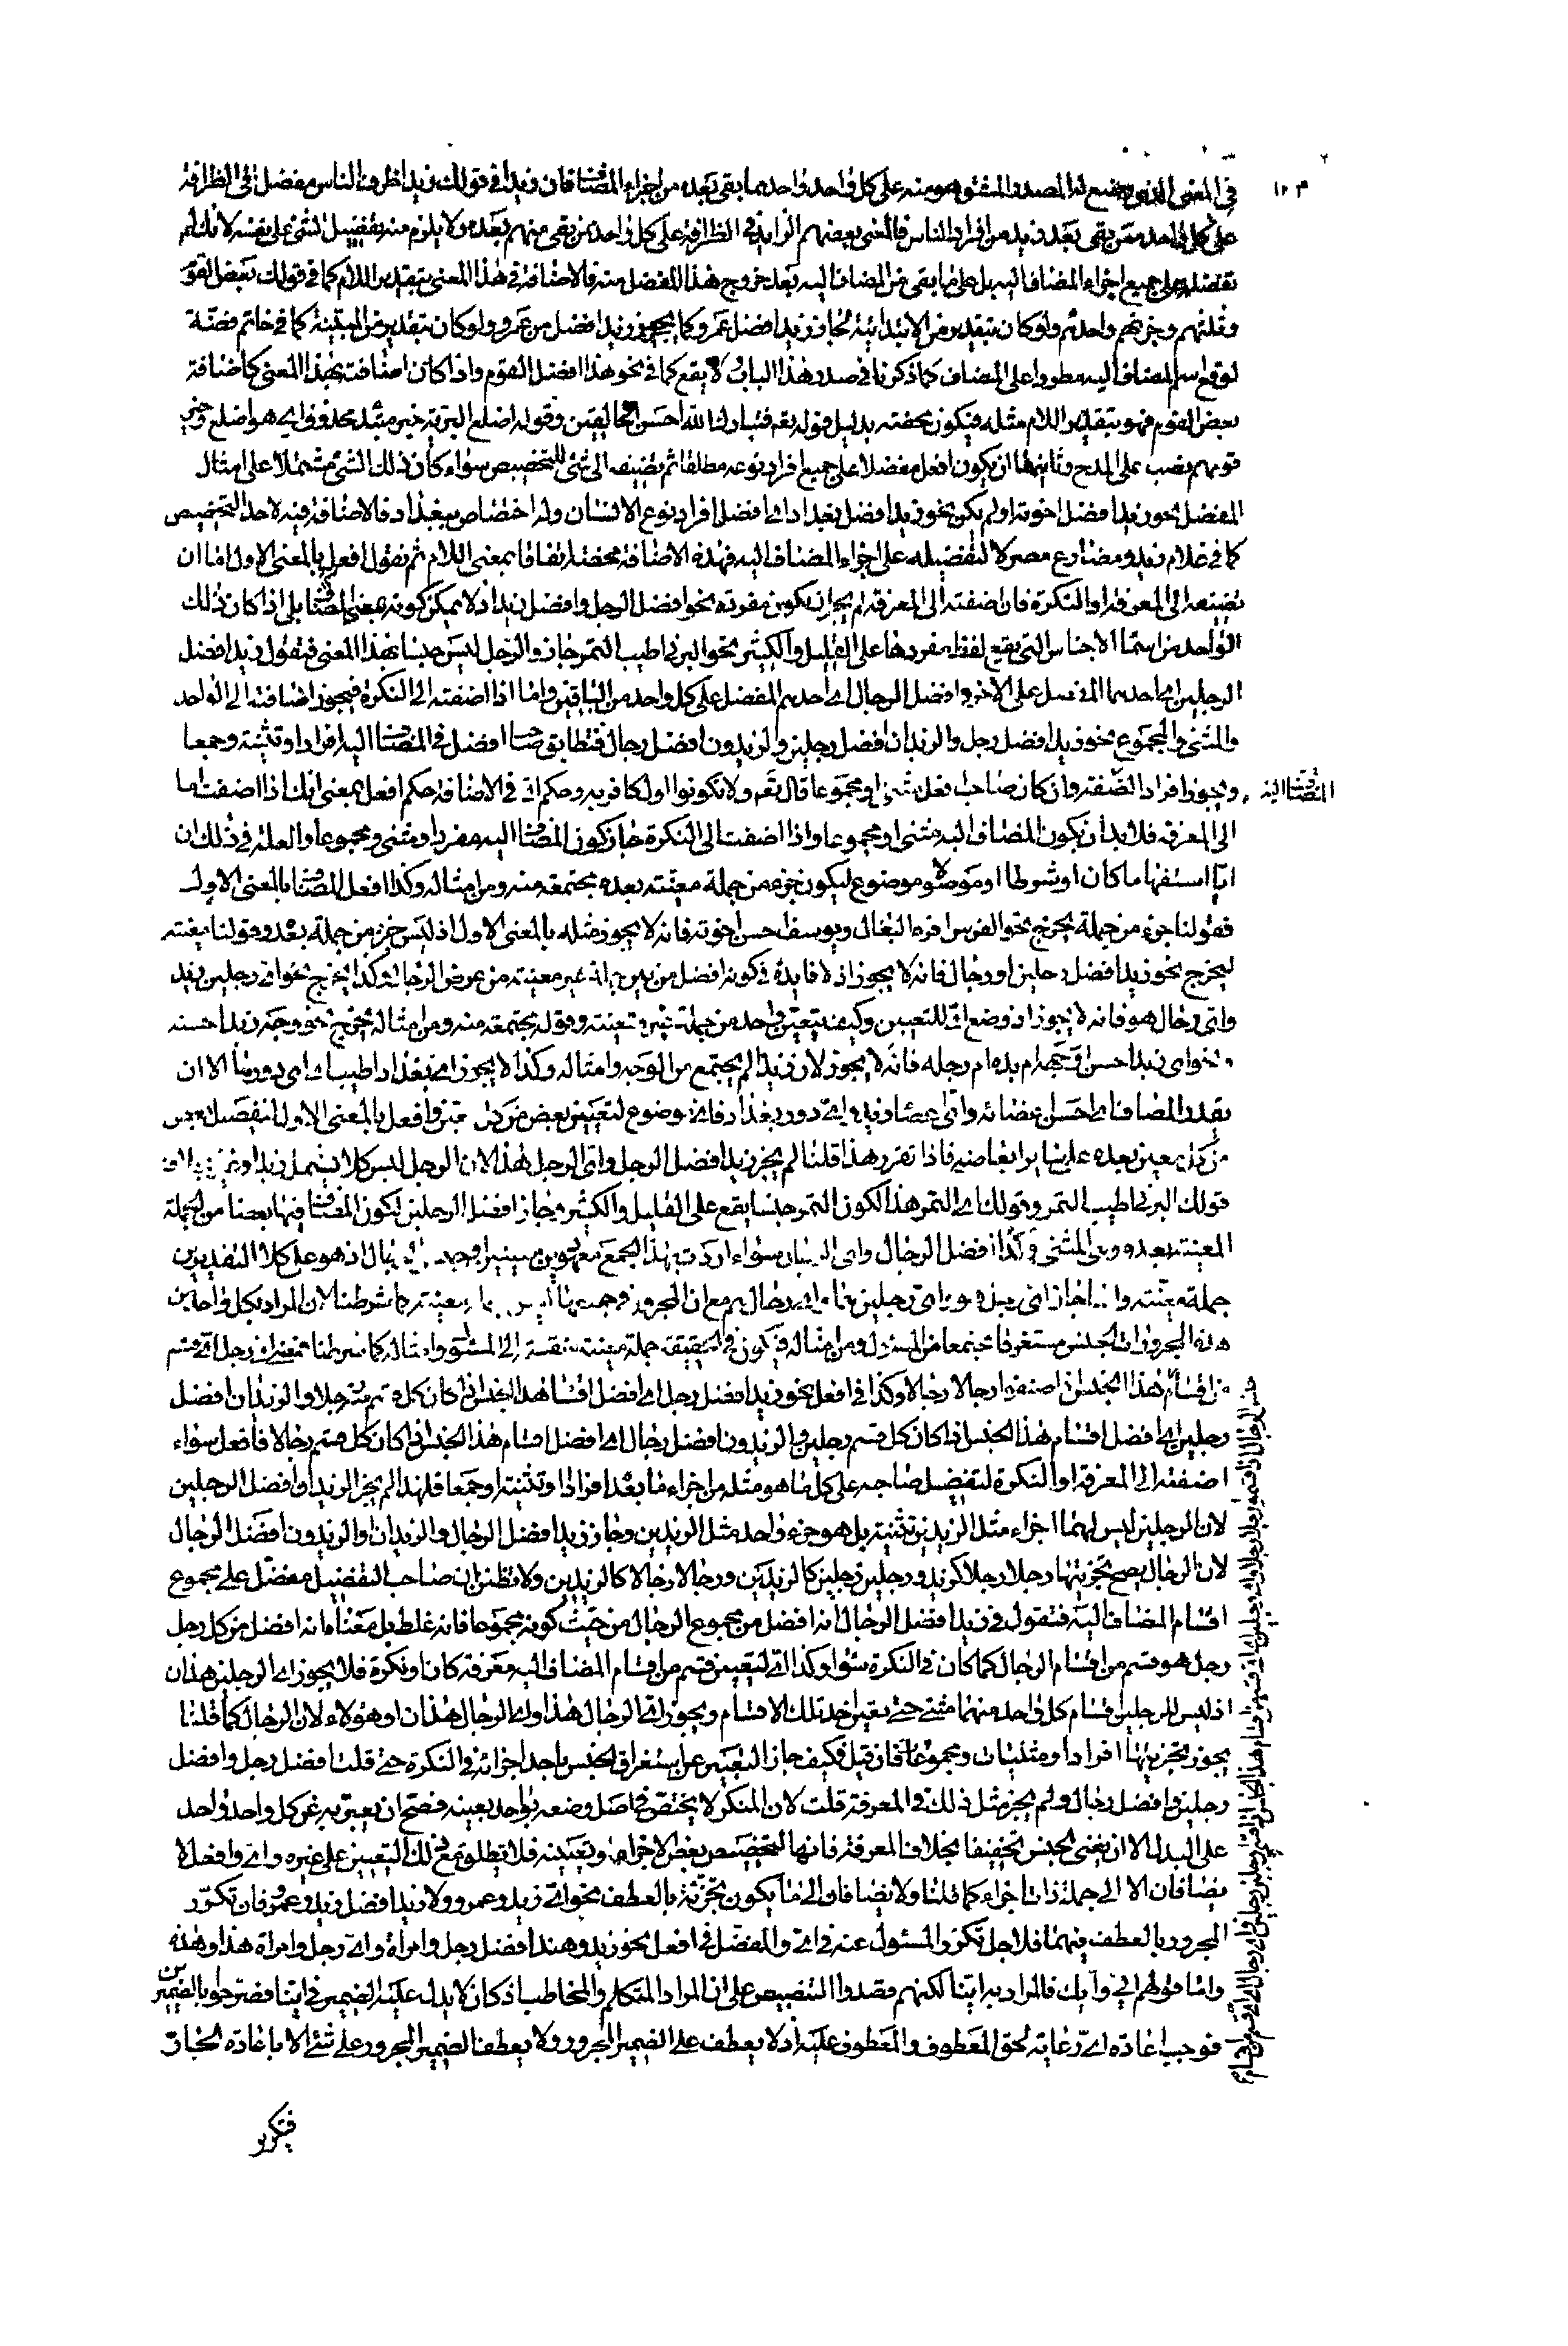 في المعنى الذي وضع له المصدر المشتق هو منه على كل واحد واحد مما بقي بعده من اجزاء المضاف فان زيدا في قولك زيد اظرف الناس مفضل في الظرافة
على كل واحد ممن بقي بعد زيد من افراد الناس فالمعنى بعضهم الزايد في الظرافة على كل واحد ممن بقي منهم بعده ولا يلزم منه تفضيل الشئ على نفسه لانك لم
تفضله على جميع اجزاء المضاف اليه بل على ما بقي من المضاف اليه بعد خروج هذا المفضل منه فالاضافة في هذا المعنى بتقدير اللام كما في قولك بعض القوم
وثلثهم وجزءهم واحدهم ولو كان بتقدير من الابتدائية لجاز زيد افضل عمرو كما يجوز زيد افضل من عمرو ولو كان بتقدير من المبينة كما في خاتم فضة
لوقع اسم المضاف اليه مطردا على المضاف كما ذكرنا في صدر هذا الباب ولا يقع كما في نحو هذا افضل القوم واذا كان اضافته بهذا المعنى كاضافة
بعض القوم فهو بتقدير اللام مثله فيكون محضة بدليل قوله تعم فتبارك الله احسن الخالقين وقوله اضلع البرية خبر مبتدا محذوف اي هو اضلع وخبر
قومهم نصب على المدح وثانيهما ان يكون افعل مفضلا على جميع افراد نوعه مطلقا ثم تضيفه الى شئ للتخصيص سواء كان ذلك الشئ مشتملا على امثال
المفضل نحو زيد افضل اخوته او لم يكن نحو زيد افضل بغداد اي افضل افراد نوع الانسان وله اختصاص ببغداد فالاضافة فيه لاجل التخصيص
كما في غلام زيد ومضارع مصر لا لتفضيله على اجزاء المضاف اليه فهذه الاضافة محضة اتفاقا بمعنى اللام ثم نقول افعل بالمعنى الاول اما ان
تضيفه الى المعرفة او النكرة فان اضفته الى المعرفة لم يجز ان يكون مفردة نحو افضل الرجل وافضل زيد اذ لا يمكن كونه بعض المضاف بلى اذا كان ذلك
الواحد من اسماء الاجناس التي يقع لفظ مفردها على القليل والكثير نحو البرني اطيب التمر جاز والرجل ليس جنسا بهذا المعنى فتقول زيد افضل
الرجلين اي احدهما المفضل على الاخر وافضل الرجال اي احدهم المفضل على كل واحد من الباقين واما اذا اضفته الى النكرة فيجوز اضافته الى الواحد
والمثنى والمجموع نحو زيد افضل رجل والزيدان افضل رجلين والزيدون افضل رجال فتطابق صاحب افضل في المضاف اليه افرادا وتثنية وجمعا
ويجوز افراد الصفة وان كان صاحب افعل مثنى او مجموعا قال تعم ولا تكونوا اول كافر به وحكم اي في الاضافة حكم افعل بمعنى انك اذا اضفت اما
المضاف اليه
الى المعرفة فلا بد ان يكون المضاف اليه مثنى او مجموعا واذا اضفت الى النكرة جاز كون المضاف اليه مفردا ومثنى ومجموعا والعلة في ذلك ان
ايا استفهاما كان او شرطا او موصولا موضوع ليكون جزء من جملة معينة بعده مجتمعة منه ومن امثاله وكذا افعل المضاف بالمعنى الاول
فقولنا جزء من جملة يخرج نحو الفرس افره البغال ويوسف احسن اخوته فانه لا يجوز مثله بالمعنى الاول اذ ليس جزء من جملة بعد وقولنا معينة
ليخرج نحو زيد افضل رجلين او رجال فانه لا يجوز اذ لا فايدة في كونه افضل من بين جملة غير معينة من عرض الرجال وكذا يخرج نحو اي رجلين زيد
واي رجال هو فانه لا يجوز اذ وضع اي للتعيين وكيف يتعين واحد من جملة غير متعينة وقوله مجتمعة منه ومن امثاله يخرج نحو وجه زيد احسنه
ونحو اي زيد احسن اوجهه ام يده ام رجله فانه لا يجوز لان زيدا لم يجتمع من الوجه وامثاله وكذا لا يجوز اي بغداد اطيب اي اي دورها الا ان
يقدر المضاف اي احسن اعضائه واي اعضاء زيد واي دور بغداد فاي موضوع لتعيين بعض من كل معين وافعل بالمعنى الاول لتفضيل بعض
من كل معين بعده على ساير ابعاضه فاذا تقرر هذا قلنا لم يجز زيد افضل الرجل واي الرجل هذا لان الرجل ليس كلا يشمل زيدا وغيره بخلاف
قولك البرني اطيب التمر وقولك اي التمر هذا لكون التمر جنسا يقع على القليل والكثير وجاز افضل الرجلين لكون المضاف فيها بعضا من الجملة
المعينة بعده وهي المثنى وكذا افضل الرجال واي الرجال سواء اردت بهذا الجمع معهودين معينين او جنس الرجال اذ هو على كلا التقديرين
جملة معينة وانما جاز اي رجل هو واي رجلين هما واي رجال هم مع ان المجرور في جميعها ليس معينة كما شرطنا لان المراد بكل واحد من
هذه المجرورات الجنس مستغرقا مجتمعا من المسئول ومن امثاله فيكون في الحقيقة جملة معينة منقسمة الى المسئول وامثاله كما شرطنا فمعنى اي رجل اي قسم
من اقسام هذا الجنس اذا صنف رجلا رجلا وكذا في افعل نحو زيد افضل رجل اي افضل اقسام هذا الجنس اذا كان كل قسم منه رجلا والزيدان افضل
رجلين اي افضل اقسام هذا الجنس اذا كان كل قسم رجلين والزيدون افضل رجال اي افضل اقسام هذا الجنس اذا كان كل قسم رجالا فافعل سواء
اضفته الى المعرفة او النكرة لتفضيل صاحبه على كل ما هو مثله من اجزاء ما بعد افرادا وتثنية وجمعا فلهذا لم يجز الزيدان افضل الرجلين
لان الرجلين ليس لهما اجزاء مثل الزيدين تثنية بل هو جزء واحد مثل الزيدين وجاز زيد افضل الرجال والزيدان والزيدون افضل الرجال
لان الرجال يصح تجزئتها رجلا رجلا كزيد ورجلين رجلين كالزيدين ورجالا رجالا كالزيدين ولا تظنن ان صاحب التفضيل مفضل على مجموع
اقسام المضاف اليه فتقول في زيد افضل الرجال انه افضل من مجموع الرجال من حيث كونه مجموعا فانه غلط بل معناه انه افضل من كل رجل
رجل هو قسم من اقسام الرجال كما كان في النكرة سواء وكذا اي لتعيين قسم من اقسام المضاف اليه معرفة كان او نكرة فلا يجوز اي الرجلين هذان
اذ ليس للرجلين اقسام كل واحد منهما مثنى حتى تعين احد تلك الاقسام ويجوز اي الرجال هذا واي الرجال هذان او هؤلاء لان الرجال كما قلنا
يجوز تجزئتها افرادا ومثنيات ومجموعا فان قيل فكيف جاز التعبير عن استغراق الجنس باحد اجزائه في النكرة حتى قلت افضل رجل وافضل
رجلين وافضل رجال ولم يجز مثل ذلك في المعرفة قلت لان المنكر لا يختص في اصل وضعه بواحد بعينه فصح ان يعبر به عن كل واحد واحد
على البدل الا ان يفنى الجنس تخفيفا بخلاف المعرفة فانها لتخصيص بعض الاجزاء وتعيينه فلا تطلق مع ذلك التعيين على غيره واي وافعل لا
يضافان الا الى جملة ذات اجزاء كما قلنا ولا يضافان الى ما يكون تجزئة بالعطف نحو اي زيد وعمرو ولا زيد افضل زيد وعمرو فان تكرر
المجرور بالعطف فيهما فلاجل تكرر المسئول عنه في اي والمفضل في افعل نحو زيد وهند افضل رجل وامراة واي رجل وامراة هذا وهذه
واما قولهم ايي وايك فالمراد به اينا لكنهم قصدوا التنصيص على ان المراد المتكلم والمخاطب اذ كان لا يدل عليه الضمير في اينا فصرحوا بالضميرين
فوجب اعادة اي رعاية لحق المعطوف والمعطوف عليه اذ لا يعطف على الضمير المجرور ولا يعطف الضمير المجرور على شئ الا باعادة الجار
فيكرر